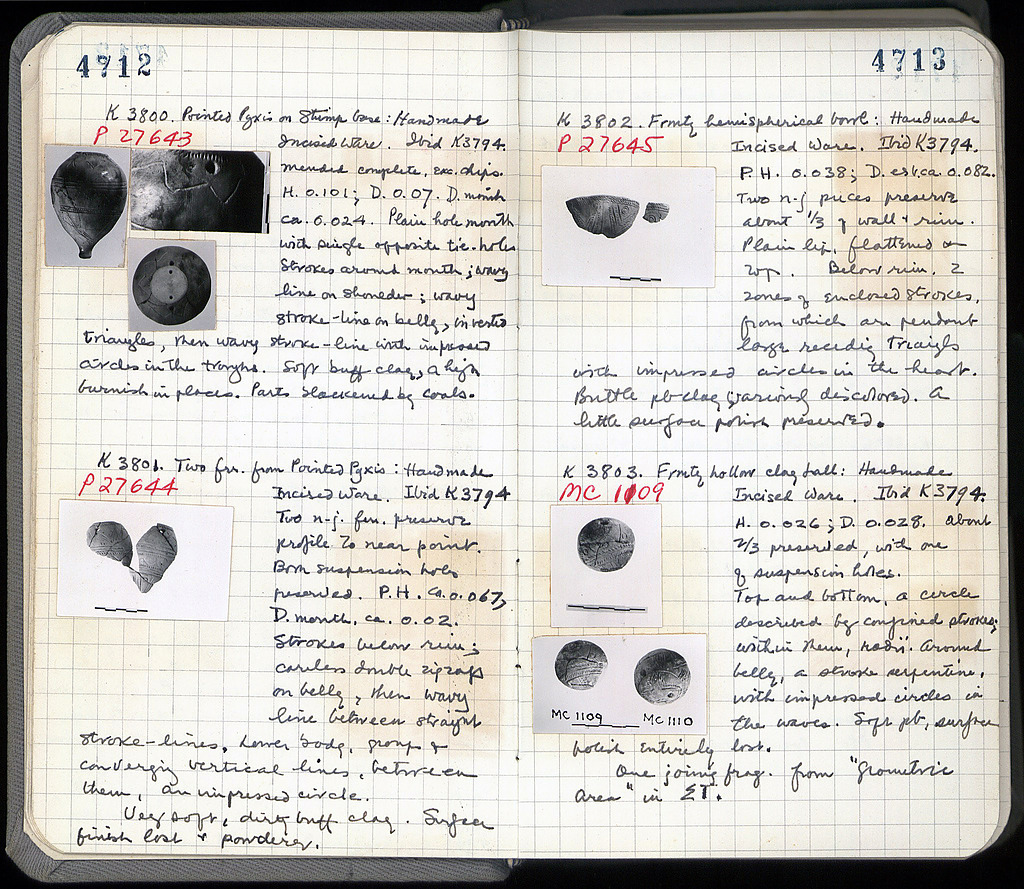 4712
K 3800. Pointed Pyxis on Stump base: Handmade
P 27643
Incised Ware. Ibid K3794.
mended complete, exc. chips.
H. 0.101; D. 0.07. D. mouth
ca. 0.024. Plain hole mouth
with single opposite tie-holes
Strokes around mouth; wavy
line on shoulder; wavy
stroke-line on belly, inverted
triangles, then wavy stroke-line with impressed
circles in the troughs. Soft buff clay, a high
burnish in places. Parts blackened by coals.
K 3801. Two frr. from Pointed Pyxis: Handmade
P 27644
Incised Ware. Ibid K3794
Two n-j. frr. preserve
profile to near point.
Both suspension holes
preserved. P.H. ca. 0.067,
D. mouth, ca. 0.02.
Strokes below rim;
careless double zigzags
on belly, then wavy
line between straight
stroke-lines. Lower body, groups of
converging vertical lines, between
them, an impressed circle.
Very soft, dirty buff clay. Surface
finish lost & powdery.
4713
K 3802. Fragmentary hemispherical bowl: Handmade
P 27645
Incised Ware. Ibid K3794.
P.H. 0.038; D. est. ca. 0.082.
Two n-j pieces preserve
about 1/3 of wall & rim.
Plain lip, flattened on
top. Below rim, 2
zones of enclosed strokes,
from which are pendant
large receding triangles
with impressed circles in the heart.
Brittle pb clay, variously discolored. A
little surface polish preserved.
K 3803. Frmty hollow clay ball: Handmade
MC 1109
Incised Ware. Ibid K3794.
H. 0.026; D. 0.028. About
2/3 preserved, with one
of suspension holes.
Top and bottom, a circle
described by confined strokes;
within them, radii. Around
belly, a stroke serpentine,
with impressed circles in
the waves. Soft pb, surface
MC 1109 MC 1110
polish entirely lost.
One joining frag. from "Geometric
Area" in ΣΤ.